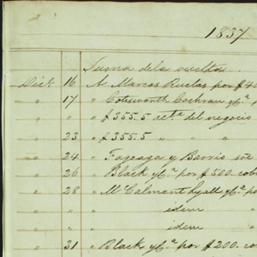 1837
Suma dela vuelta
Dicb. 16 A Marcos Ruelas por $4
" 17 " Cotesworth Cochran y Ca. p
" " " $355.5 del negocio
" 23 " $355.5 " "
" 24 " Fagoaga y Barrio
" 26 " Black y Ca. por $500. cob
" 28 " McCalmont Lyall y Ca. po
" " idem
" " idem
" 31 " Black y Ca. por $200. co